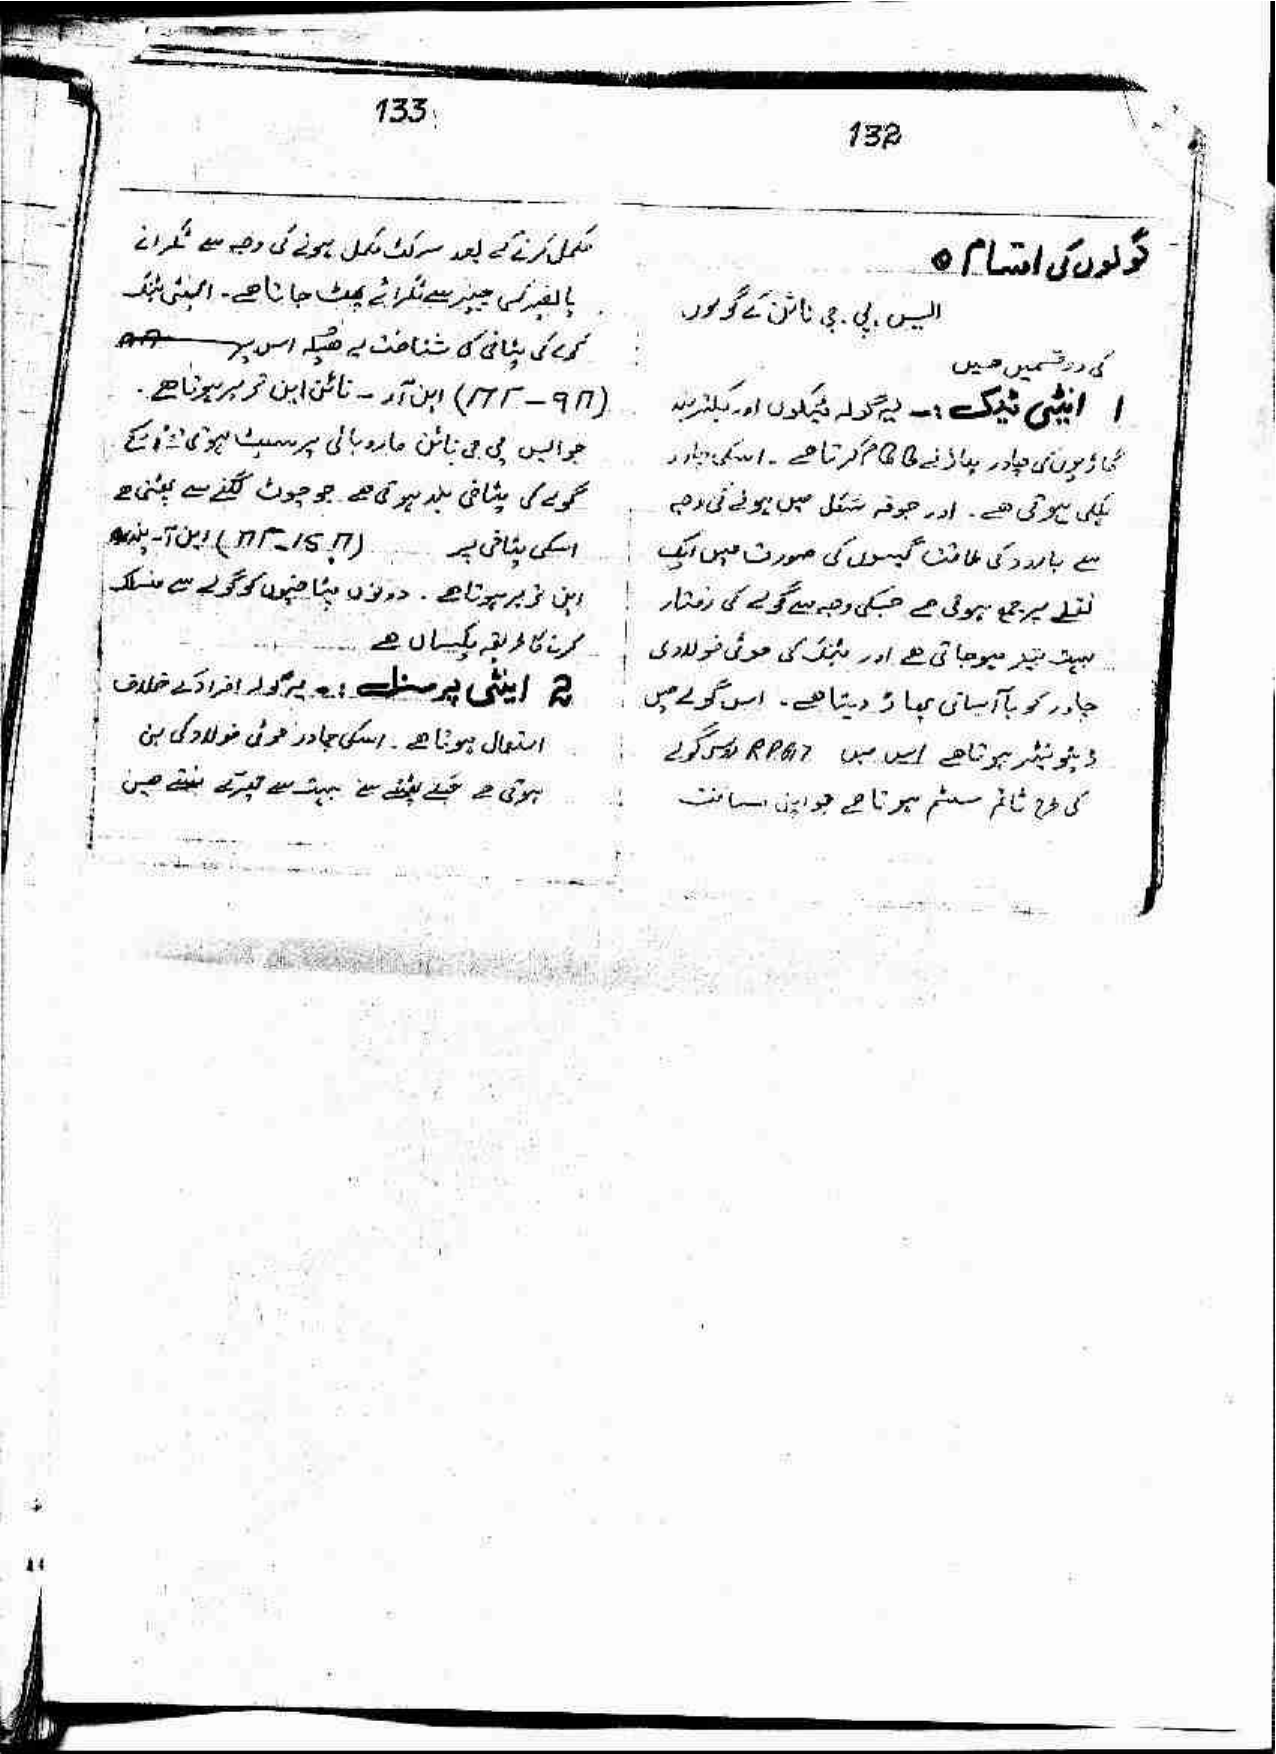 132
گولوں کی اقسام
ایس۔پی۔جی نائن کے گولوں
کی دو قسمیں ھیں
1 اینٹی ٹینک :۔ یہ گولہ ٹینکوں اور بکتر بند
گاڑیوں کی چادر پھاڑنے کا کام کرتا ھے۔ اسکی چادر
پتلی ہوتی ھے۔ اور جوفہ شکل میں ہونے کی وجہ
سے بارود کی طاقت گیسوں کی صورت میں ایک
نقطے پر جمع ہوتی ھے جسکی وجہ سے گولے کی رفتار
بہت تیز ہوجاتی ھے اور ٹینک کی موٹی فولادی
چادر کو باآسانی پھاڑ دیتا ھے۔ اس گولے میں
ڈیٹونیٹر ہوتا ھے اس میں RPG7 گولے
کی طرح ٹائم سسٹم ہوتا ھے جو اپنی مسافت
133
مکمل کرنے کے بعد سرکٹ مکمل ہونے کی وجہ سے ٹکرانے
یا بغیر کسی چیز سے ٹکرائے پھٹ جاتا ھے۔ اینٹی ٹینک
گولے کی پٹاخی کی شناخت یہ ھیکہ اس پر
(ПГ-9П) این آر۔ نائن این تحریر ہوتا ھے۔
جو ایس پی جی نائن
گولے کی پٹاخی بلند ہوتی ھے جو چوٹ لگنے سے پھٹتی ھے
اسکی پٹاخی پر (ПГ-15П) این آر۔ پندرہ
این تحریر ہوتا ھے۔ دونوں پٹاخیوں کو گولے سے منسلک
کرنے کا طریقہ یکساں ھے
2 اینٹی پرسنل :۔ یہ گولہ افراد کے خلاف
استعمال ہوتا ھے۔ اسکی چادر موٹی فولاد کی بنی
ہوتی ھے جسکے پھٹنے سے بہت سے ٹکڑے بنتے ھیں